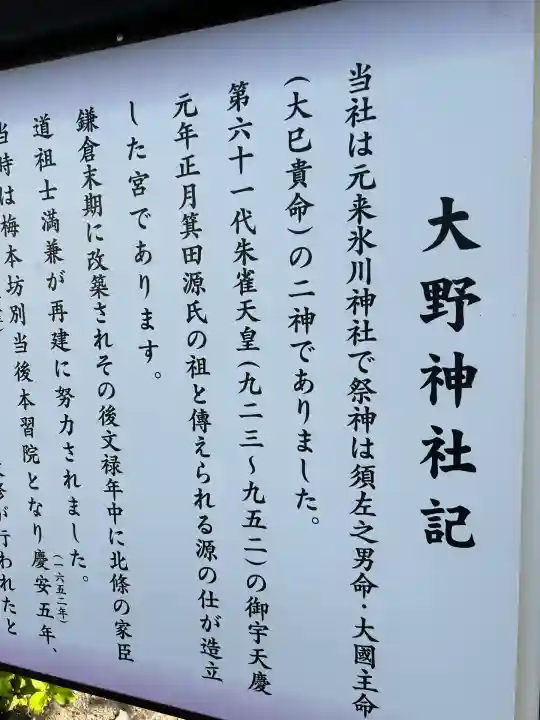 大野神社記
当社は元来氷川神社で祭神は須左之男命・大國主命
(大巳貴命)の二神でありました。
第六十一代朱雀天皇(九二三～九五二)の御宇天慶
元年正月箕田源氏の祖と傳えられる源の仕が造立
した宮であります。
鎌倉末期に改築されその後文禄年中に北條の家臣
道祖士満兼が再建に努力されました。
当時は梅本坊別当後本習院となり慶安五年、
(一六五二年)
が行われたと